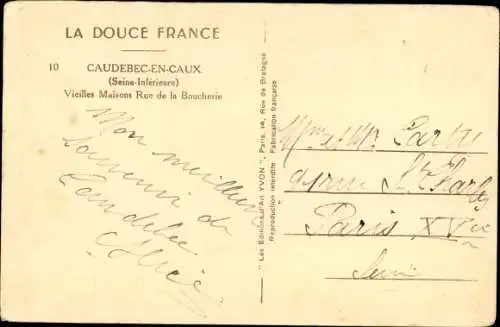 LA DOUCE FRANCE
10 CAUDEBEC-EN-CAUX
(Seine-Inférieure)
Vieilles Maisons Rue de la Boucherie
Mon meilleur
souvenir de
Caudebec
"Les Editions d'Art YVON", Paris, 14, Rue de Bretagne
Reproduction interdite Fabrication française
St Charles
Paris XVe
Seine